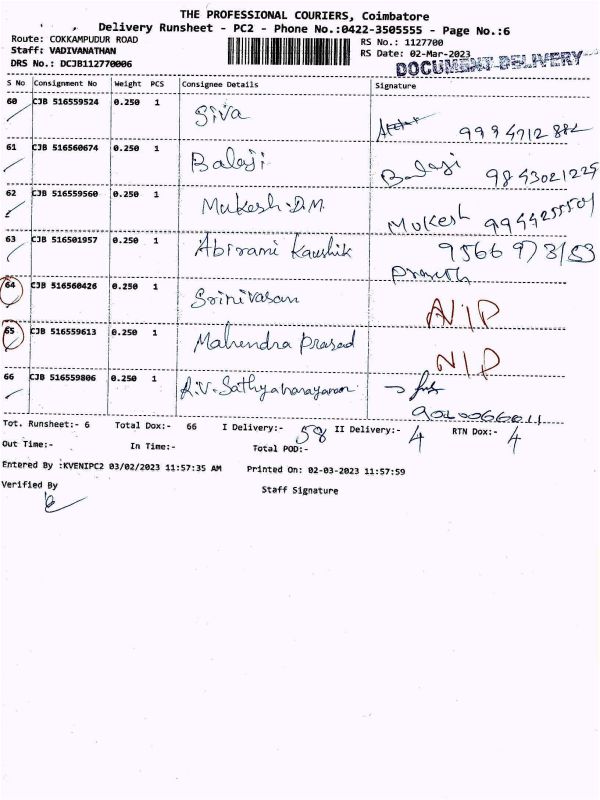 THE PROFESSIONAL COURIERS, Coimbatore
Delivery Runsheet - PC2 - Phone No.:0422-3505555 - Page No.:6
Route: COKKAMPUDUR ROAD
RS No.: 1127700
Staff: VADIVANATHAN
RS Date: 02-Mar-2023
DRS No.: DCJB112770006
DOCUMENT DELIVERY
S No Consignment No Weight PCS Consignee Details Signature
60 CJB 516559524 0.250 1 Siva
61 CJB 516560674 0.250 1 Balaji Balaji 9843021225
62 CJB 516559560 0.250 1 Mukesh.D.M Mukesh
63 CJB 516501957 0.250 1 Abirami Kaushik
64 CJB 516560426 0.250 1 Srinivasan N/P
65 CJB 516559613 0.250 1 Mahendra Prasad N/P
66 CJB 516559806 0.250 1 R.V. Sathyanarayanan
9020066011
Tot. Runsheet:- 6 Total Dox:- 66 I Delivery:- 58 II Delivery:- 4 RTN Dox:- 4
Out Time:- In Time:- Total POD:-
Entered By :KVENIPC2 03/02/2023 11:57:35 AM Printed On: 02-03-2023 11:57:59
Verified By Staff Signature